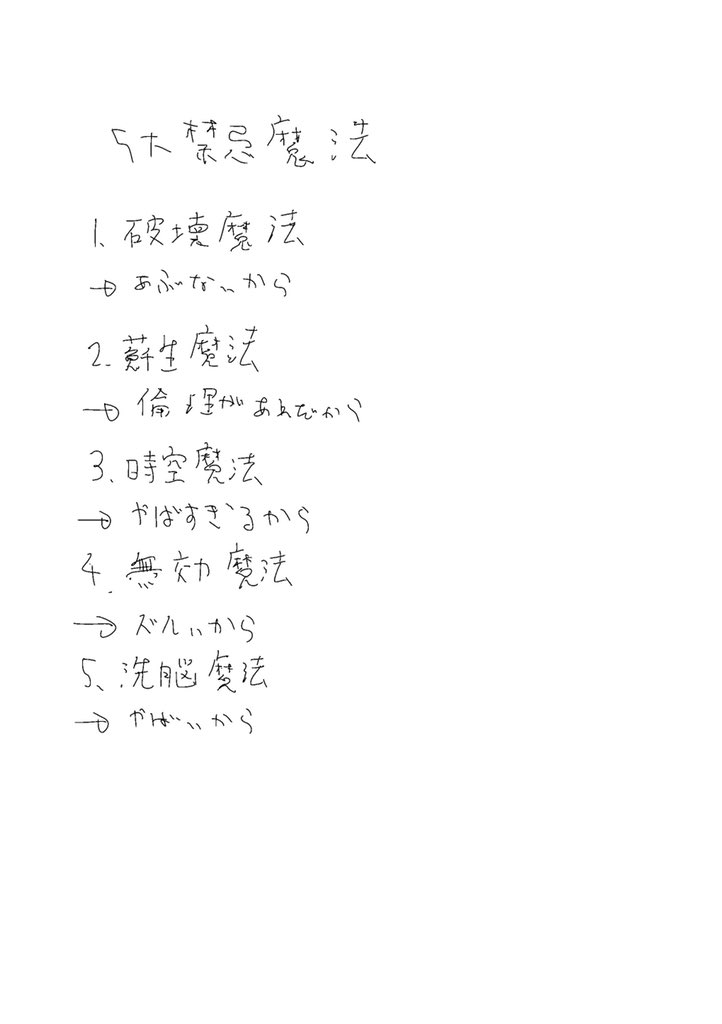 5大禁忌魔法
1. 破壊魔法
→ あぶないから
2. 蘇生魔法
→ 倫理があれだから
3. 時空魔法
→ やばすぎるから
4. 無効魔法
→ ズルいから
5. 洗脳魔法
→ やばいから